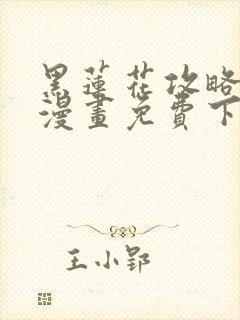 黑蓮花攻略
漫畫免費下
王小郢